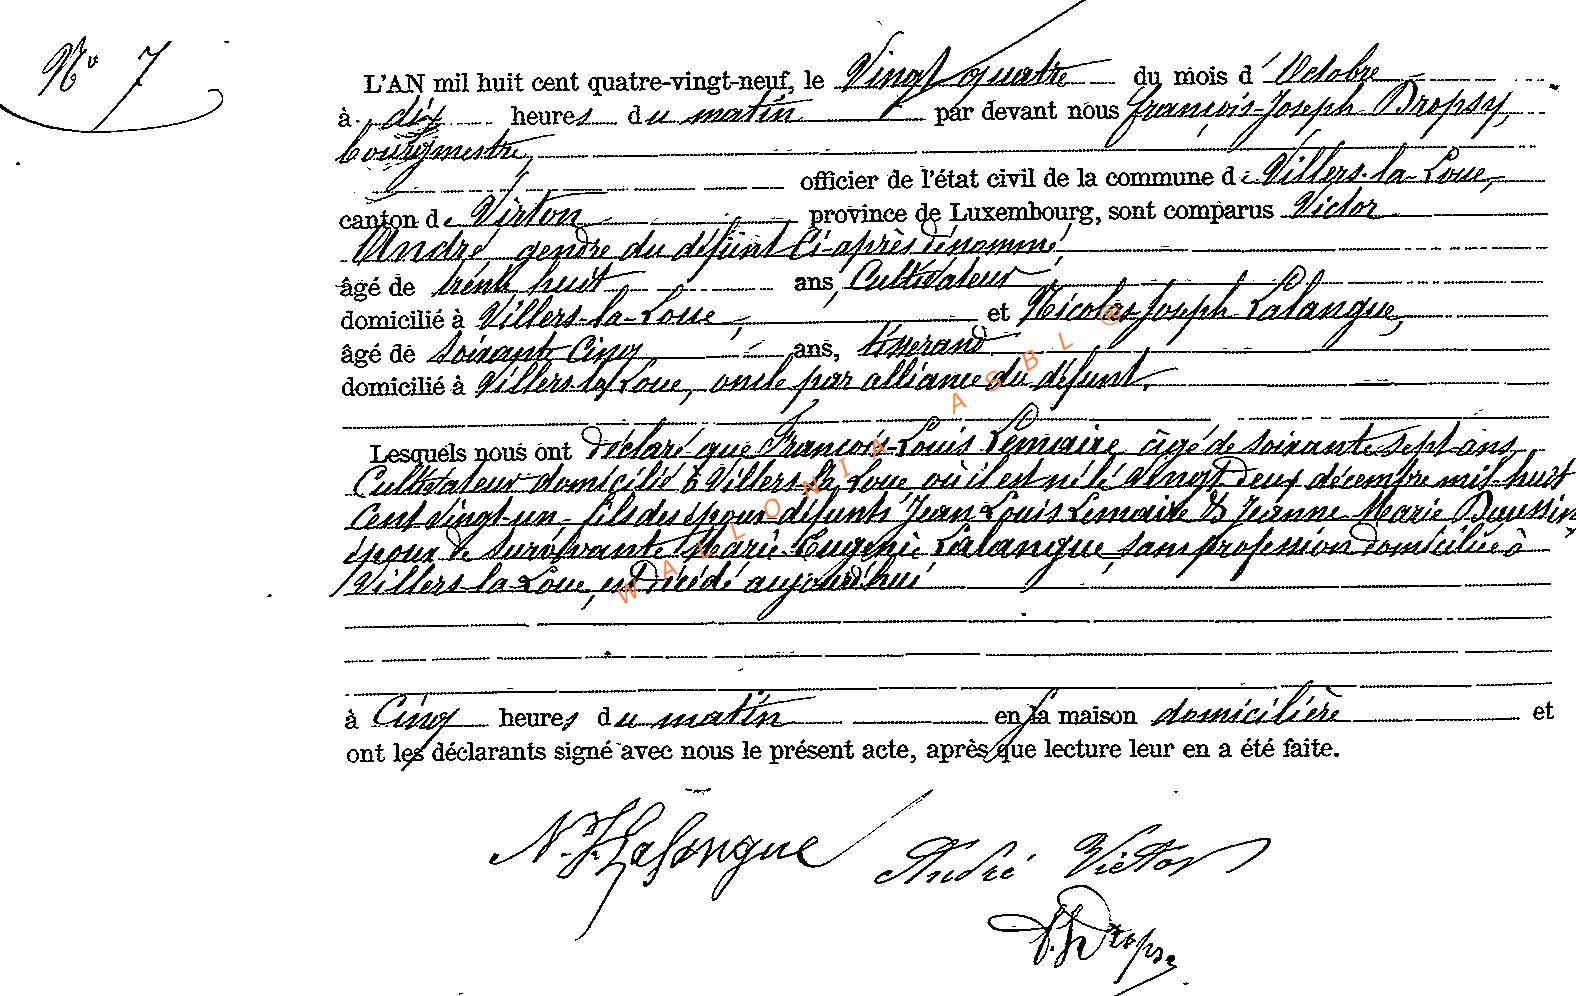 No 7
L'AN mil huit cent quatre-vingt-neuf, le Vingt quatre du mois d'Octobre
à dix heures du matin par devant nous François-Joseph Dropsy,
bourgmestre,
officier de l'état civil de la commune de Villers-la-Loue,
canton de Virton province de Luxembourg, sont comparus Victor
André, gendre du défunt ci-après dénommé,
âgé de trente huit ans, Cultivateur
domicilié à Villers-la-Loue, et Nicolas Joseph Lalangue,
âgé de soixante Cinq ans, tisserand
domicilié à Villers-la-Loue, oncle par alliance du défunt.
Lesquels nous ont déclaré que François-Louis Lemaire, âgé de soixante sept ans,
Cultivateur domicilié à Villers-la-Loue où il est né le vingt deux décembre mil huit
Cent vingt-un, fils des époux défunts Jean Louis Lemaire & Jeanne Marie
époux de survivante Marie Eugenie Lalangue, sans profession domiciliée à
Villers-la-Loue, est décédé aujourd'hui
à Cinq heures du matin en sa maison domicilière et
ont les déclarants signé avec nous le présent acte, après que lecture leur en a été faite.
N. J. Lalangue André Victor
Dropsy
WALLONIA ASBL ©